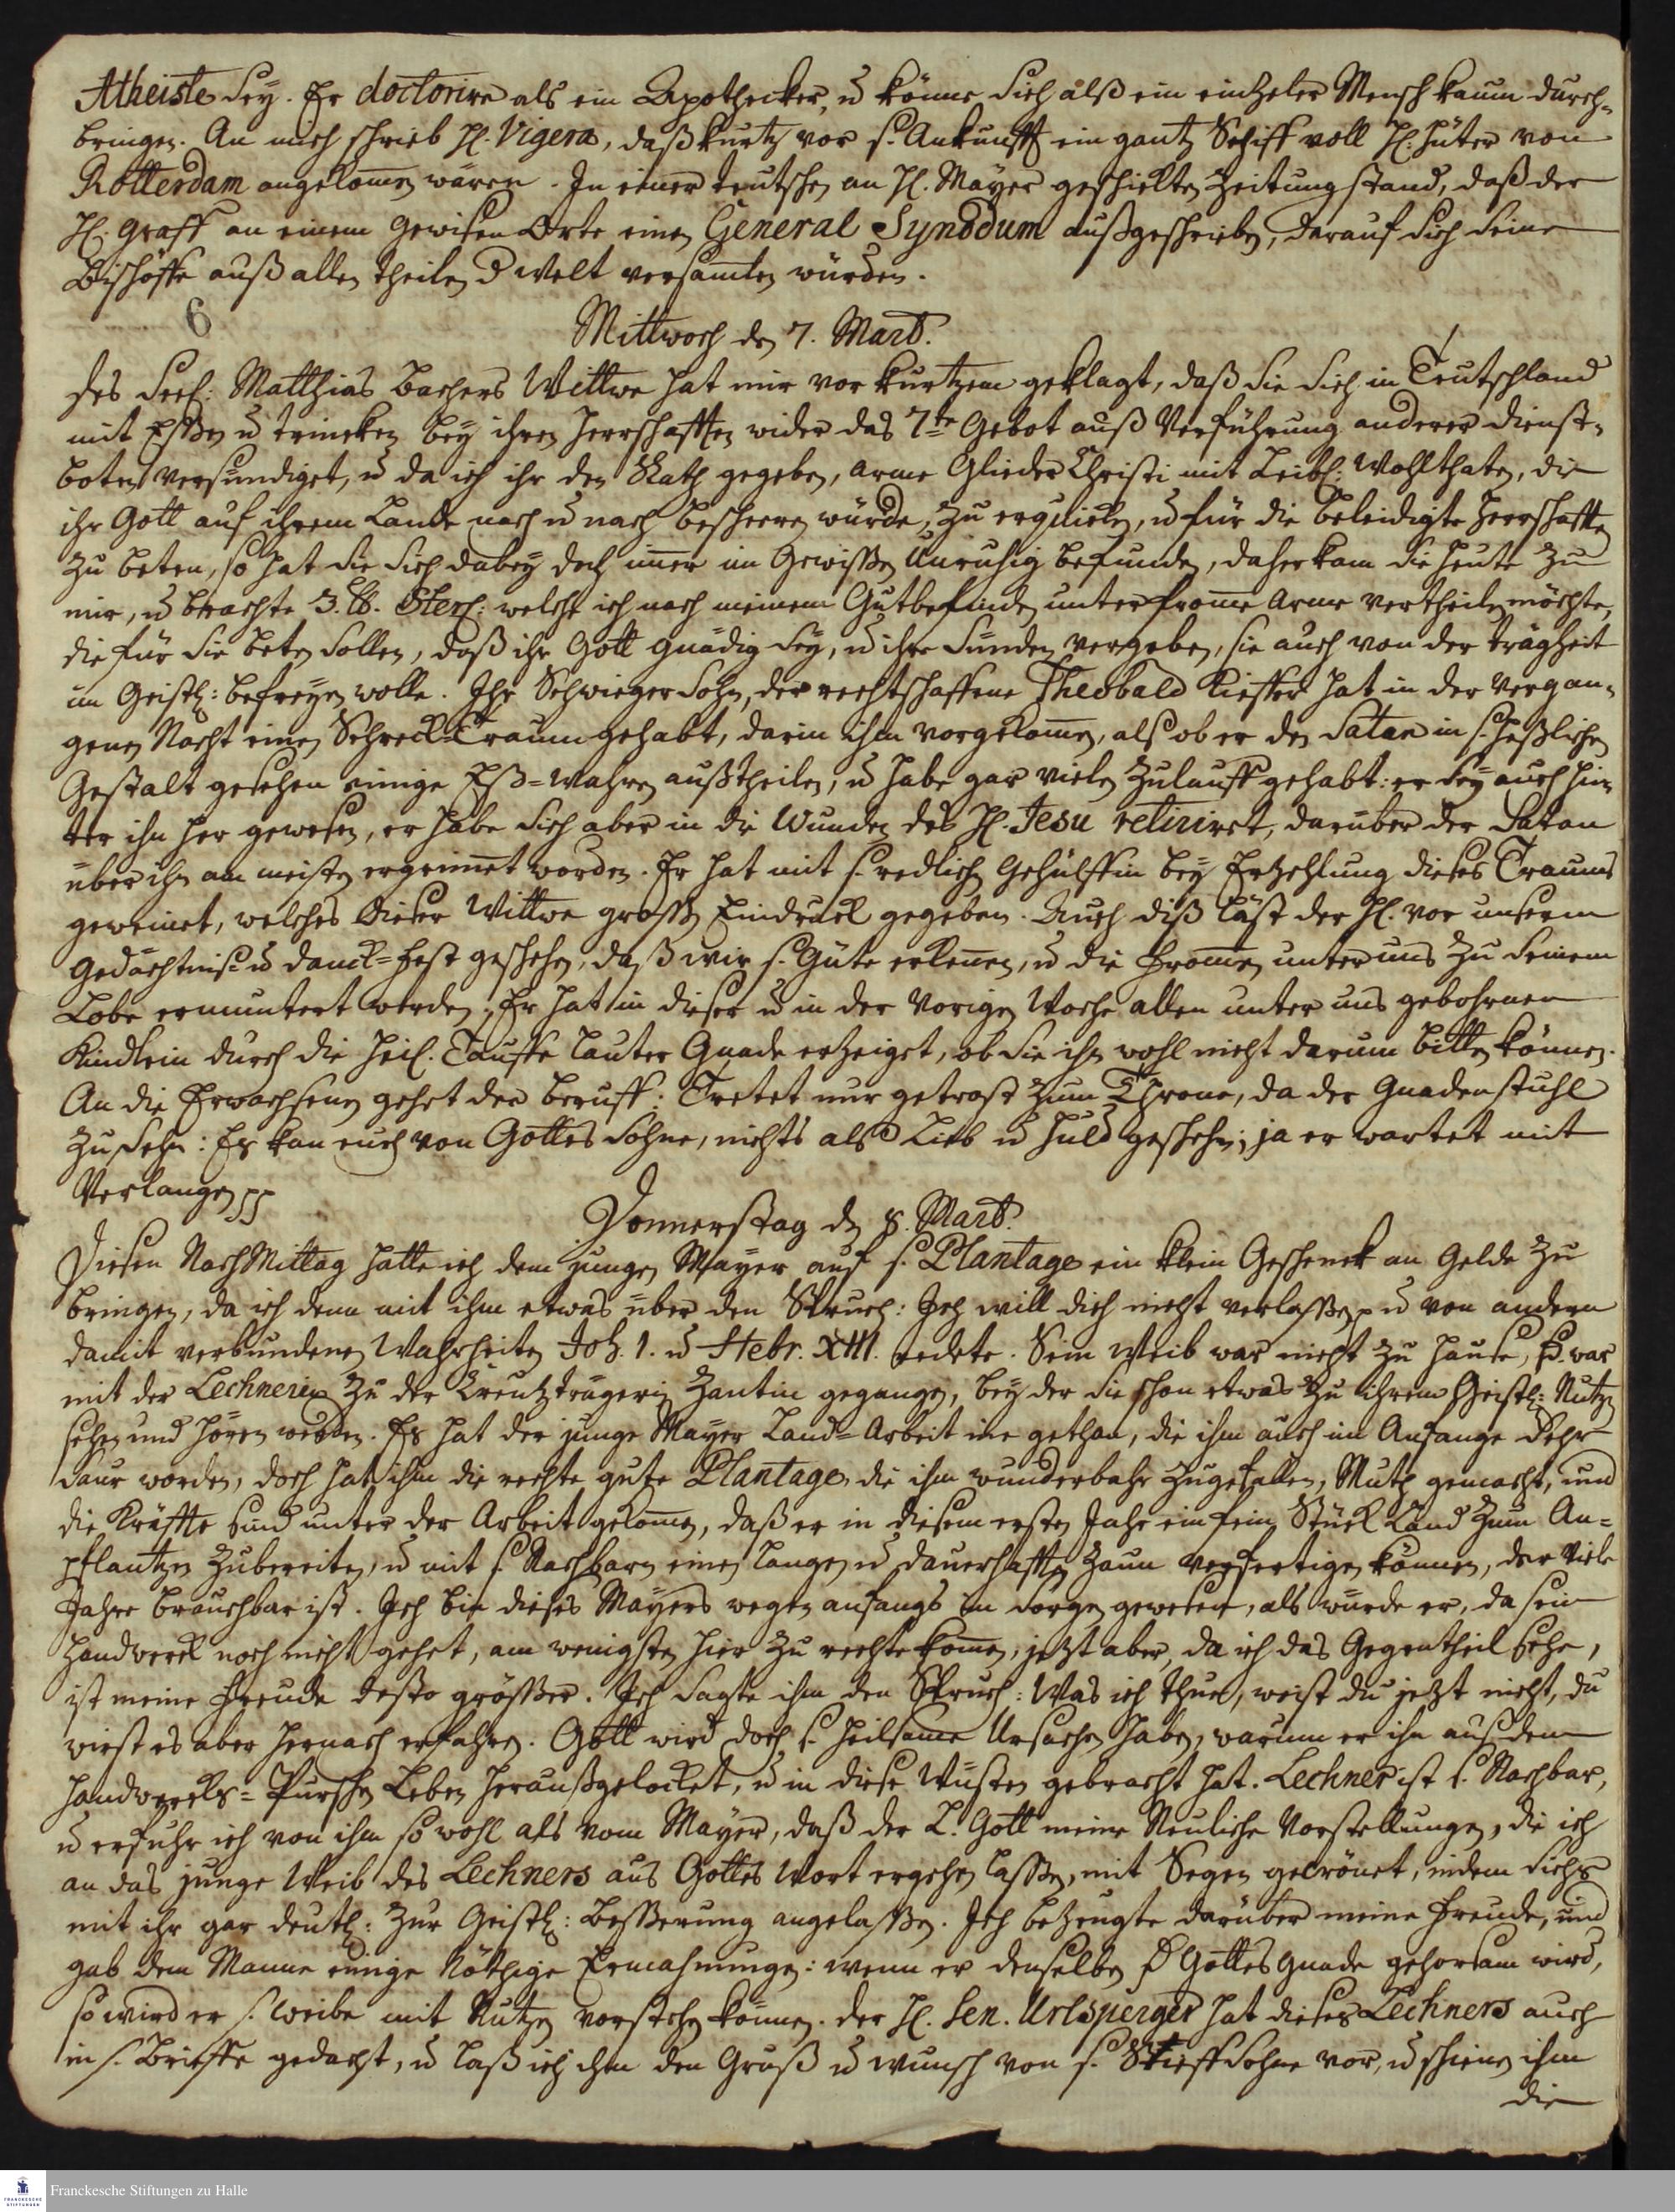 Atheiste sey. Er doctorire als ein Apothecker, u könne sich alß ein eintzeler Mensch kaum durch-
bringen. An mich schrieb H. Vigera, daß kurtz vor s. Ankunfft ein gantz Schiff voll H. hüter von
Rotterdam angekomen wären. In einer teutschen an H. Mayer geschickten Zeitung stand, daß der
H. Graff an einem gewisen Orte einen General Synodum außgeschrieben, darauf sich seine
Bischöffe auß allen theilen d Welt versamlen würden.
6
Mittwoch den 7. Mart.
Des Seel: Matthias Bachers Wittwe hat mir vor kurtzem geklagt, daß sie sich in Teutschland
mit Eßen u trincken bey ihren Herrschafften wider das 7te Gebot auß Verführung anderer Dienst-
boten versündiget, u da ich ihr den Rath gegeben, arme Glieder Christi mit Leibl: Wohlthaten, die
ihr Gott auf ihrem Lande nach u nach bescheeren würde, zu erquicken, u für die beleidigte Herrschafften
zu beten, so hat sie sich dabey doch imer im Gewißen Unruhig befunden, daher kam sie heute zu
mir, u brachte 3. lb. Sterl: welche ich nach meinem Gutbefinden unter frome Arme vertheilen möchte,
die für sie beten sollen, daß ihr Gott gnädig sey, u ihre Sünden vergeben, sie auch von der trägheit
im Geistl: befreyen wolle. Ihr Schwieger Sohn, der rechtschaffene Theobald Kieffer hat in der vergan-
genen Nacht einen Schreck-Traum gehabt, darin ihm vorgekomen, als ob er den Satan in s. heßlichen
Gestalt gesehen einige Eß-Wahren außtheilen, u habe gar vielen Zulauff gehabt: er sey auch hin-
ter ihm her gewesen, er habe sich aber in die Wunden des H. Jesu retiriret, darüber der Satan
über ihn am meisten ergrimet worden. Er hat mit s. redlichen Gehülffin bey Erzehlung dieses Traums
geweinet, welches dieser Wittwe grossen Eindruck gegeben. Auch diß läst der H. vor unserm
Gedächtniß- u danck-Fest geschehen, daß wir s. Güte erkenen, u die Fromen unter uns zu seinem
Lobe ermuntert werden. Er hat in dieser u in der vorigen Woche allen unter uns gebohrnen
Kindlein durch die Heil. Tauffe lauter Gnade erzeiget, ob sie ihn wohl nicht darum bitten können.
An die Erwachsenen gehet der Beruff: Tretet nur getrost zum Throne, da der Gnadenstuhl
zu sehn: Es kan euch von Gottes Sohne, nichts als Lieb u Huld geschehn; ja er wartet mit
Verlangen pp
Donnerstag den 8. Mart.
Diesen NachMittag hatte ich dem jungen Mayer auf s. Plantage ein klein Geschenck an Gelde zu
bringen, da ich denn mit ihm etwas über den Spruch: Ich will dich nicht verlaßen p u von andern
damit verbundenen Wahrheiten Jos. 1. u Hebr. XIII. redete. Sein Weib war nicht zu Hause, sd. war
mit der Lechnerin zu der Creutzträgerin Zantin gegangen, bey der sie schon etwas zu ihrem Geistl: Nutzen
sehen und hören werden. Es hat der junge Mayer Land-Arbeit nie gethan, die ihm auch im Anfange sehr
saur worden, doch hat ihm die rechte gute Plantage, die ihm wunderbahr zugefallen, Muth gemacht, und
die Kräffte sind unter der Arbeit gekomen, daß er in diesem ersten Jahr ein fein Stück Land zum An-
pflantzen zubereiten, u mit s. Nachbarn einen langen u dauerhafften Zaun verfertigen können, der viele
Jahre brauchbar ist. Ich bin dieses Mayers wegen anfangs in Sorgen gewesen, als würde er, da sein
Handwerck noch nicht gehet, am wenigsten hier zu rechte komen, jetzt aber, da ich das Gegentheil sehe,
ist meine Freude desto grösser. Ich sagte ihm den Spruch: Was ich thue, weist du jetzt nicht, du
wirst es aber hernach erfahren. Gott wird doch s. heilsame Ursachen haben, warum er ihn auß dem
Handwercks-Purschen Leben heraußgelocket, u in diese Wüsten gebracht hat. Lechner ist s. Nachbar,
u erfuhr ich von ihm so wohl als vom Mayer, daß der L. Gott meine Neuliche Vorstellungen, die ich
an das junge Weib des Lechners aus Gottes Wort ergehen lassen, mit Segen gecrönet, indem sichs
mit ihr gar deutl: zur Geistl: Beßerung angelaßen. Ich bezeugte darüber meine Freude, und
gab dem Manne einige Nöthige Ermahnungen: wenn er denselben d Gottes Gnade gehorsam wird,
so wird er s. Weibe mit Nutzen vorstehen können. Der H. Sen. Urlsperger hat dieses Lechners auch
in s. Brieffe gedacht, u laß ich ihm den Gruß u wunsch von s. Stieff Sohne vor, u schienen ihm
die
Franckesche Stiftungen zu Halle